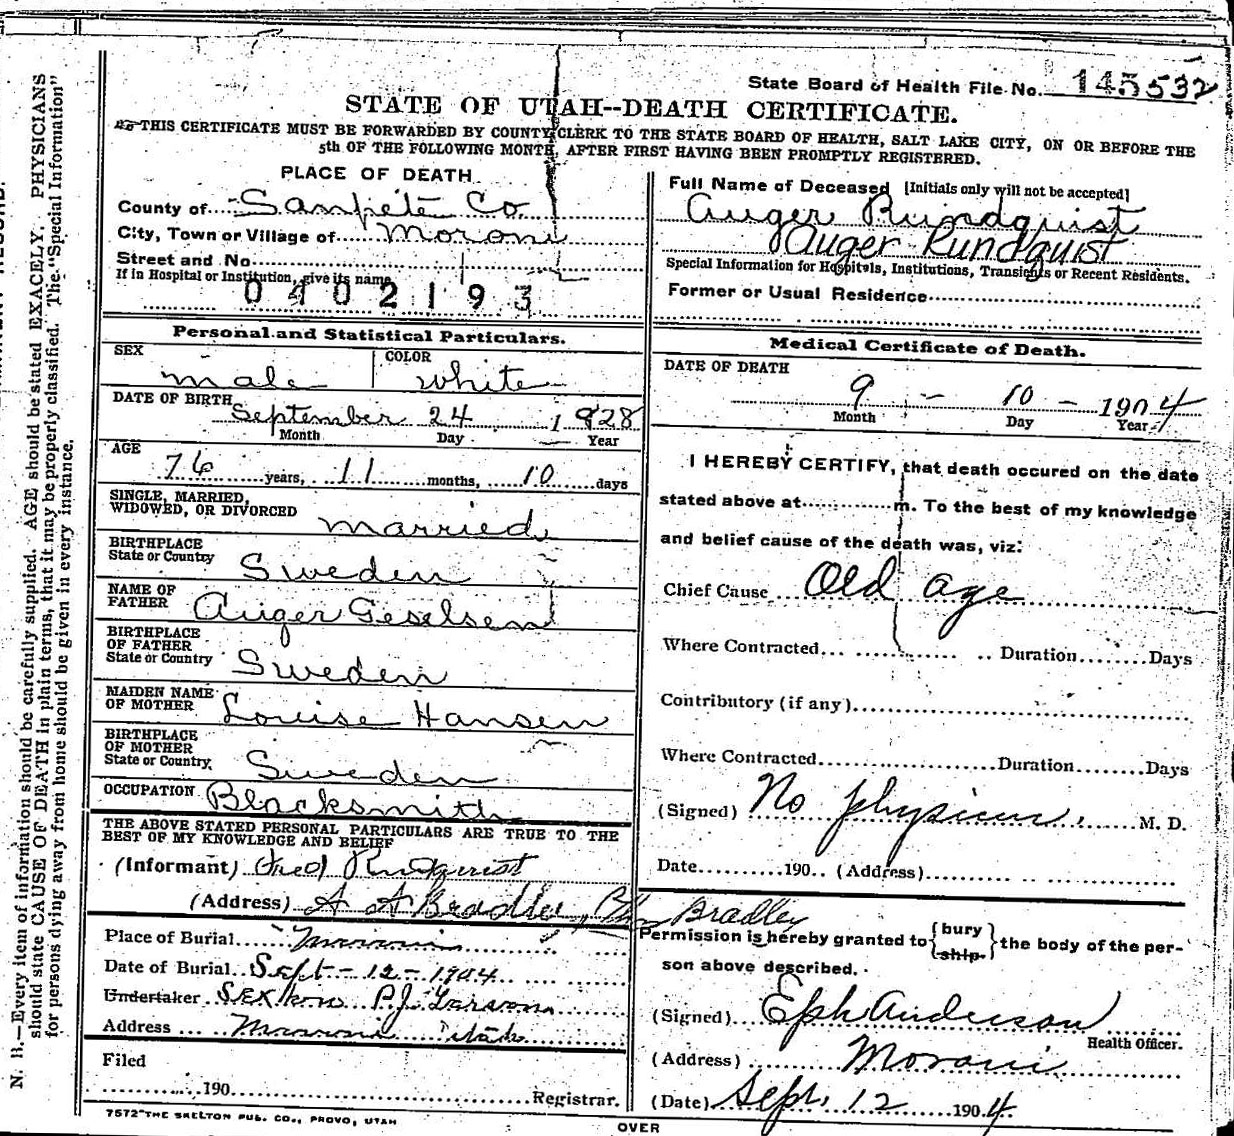 State Board of Health File No. 145532
STATE OF UTAH--DEATH CERTIFICATE.
THIS CERTIFICATE MUST BE FORWARDED BY COUNTY CLERK TO THE STATE BOARD OF HEALTH, SALT LAKE CITY, ON OR BEFORE THE
5th OF THE FOLLOWING MONTH, AFTER FIRST HAVING BEEN PROMPTLY REGISTERED.
PLACE OF DEATH
County of Sanpete Co
City, Town or Village of Moroni
Street and No
If in Hospital or Institution, give its name
0402193
Full Name of Deceased [Initials only will not be accepted]
Auger Rundquist
Auger Rundquist
Special Information for Hospitals, Institutions, Transients or Recent Residents.
Former or Usual Residence
Personal and Statistical Particulars.
SEX COLOR
male white
DATE OF BIRTH
September 24 1828
Month Day Year
AGE
76 years, 11 months, 10 days
SINGLE, MARRIED,
WIDOWED, OR DIVORCED married
BIRTHPLACE
State or Country Sweden
NAME OF
FATHER Auger Geselsen
BIRTHPLACE
OF FATHER
State or Country Sweden
MAIDEN NAME
OF MOTHER Louise Hansen
BIRTHPLACE
OF MOTHER
State or Country Sweden
OCCUPATION Blacksmith
THE ABOVE STATED PERSONAL PARTICULARS ARE TRUE TO THE
BEST OF MY KNOWLEDGE AND BELIEF
(Informant) Fred Rundquist
(Address) A A Bradley, Bradley
Place of Burial Moroni
Date of Burial Sept-12-1904
Undertaker Sexton P.J. Larson
Address Moroni Utah
Filed
190 Registrar.
7572 THE SKELTON PUB. CO., PROVO, UTAH
Medical Certificate of Death.
DATE OF DEATH
9 - 10 - 1904
Month Day Year
I HEREBY CERTIFY, that death occured on the date
stated above at m. To the best of my knowledge
and belief cause of the death was, viz:
Chief Cause Old age
Where Contracted Duration Days
Contributory (if any)
Where Contracted Duration Days
(Signed) No physician. M. D.
Date 190 (Address)
Permission is hereby granted to {bury ship} the body of the per-
son above described.
(Signed) Eph Anderson
Health Officer.
(Address) Moroni
(Date) Sept. 12 1904.
OVER
N. B.—Every item of information should be carefully supplied. AGE should be stated EXACELY. PHYSICIANS
should state CAUSE OF DEATH in plain terms, that it may be properly classified. The "Special Information"
for persons dying away from home should be given in every instance.